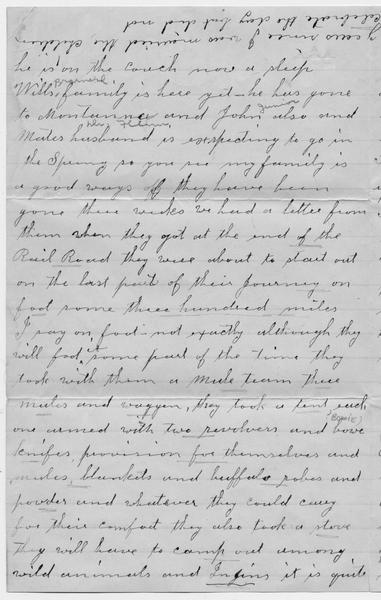 years since I was married the children
celebrate the day but did not
he is on the couch now a sleep
Wills Brainard family is here yet - he has gone
to Montanna and John Junior also and
Mates husband is expecting to go in
the Spring so you see my family is
a good ways off they have been
gone three weeks we had a letter from
them when they got at the end of the
Rail Road they were about to start out
on the last part of their Journey on
foot some three hundred miles
I say on foot not exactly although they
will foot it some part of the time they
took with them a Mule team three
mules and waggon, they took a tent each
one armed with two revolvers and bowe (Bowie)
knifes, provision for themselves and
mules, blankets and buffalo robes and
powder and whatever they could carry
for their comfort they also took a stove
They will have to camp out among
wild animals and Ingins it is quite